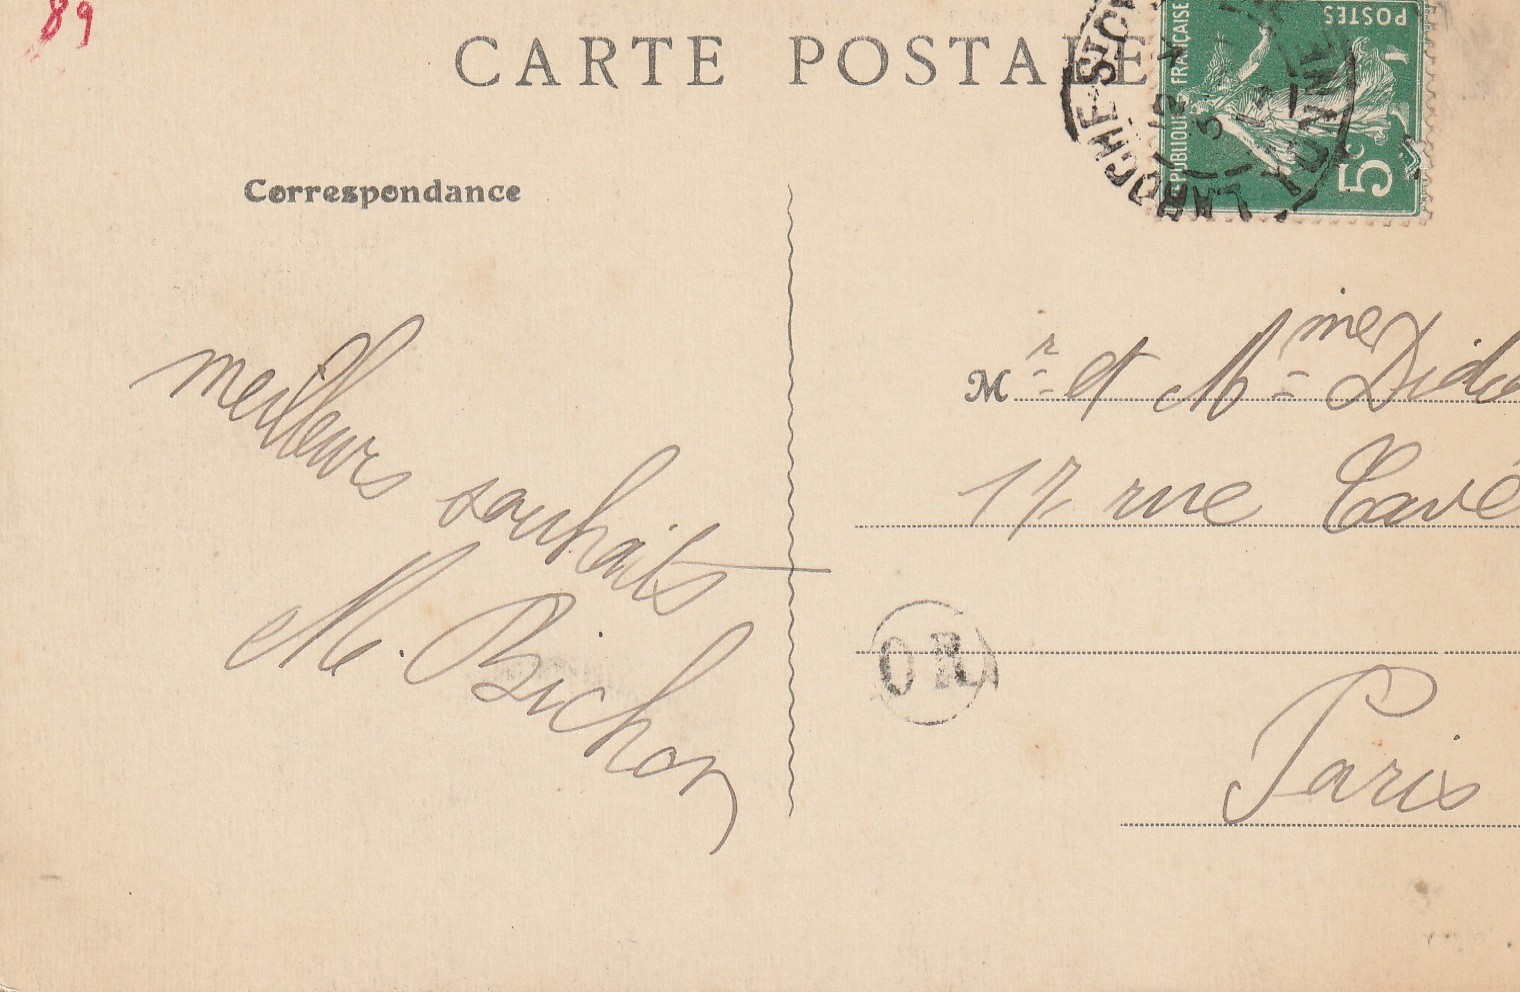 89
CARTE POSTALE
REPUBLIQUE FRANÇAISE
POSTES
5c
Correspondance
meilleurs souhaits
M. Bichon
Mr et Mme
17 rue Cavé
OR
Paris